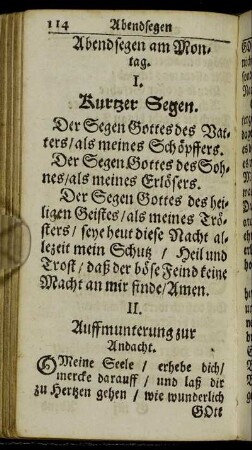 114 Abendsegen
Abendsegen am Mon-
tag.
I.
Kurtzer Segen.
Der Segen Gottes des Vat-
ters/als meines Schöpffers.
Der Segen Gottes des Soh-
nes/als meines Erlösers.
Der Segen Gottes des hei-
ligen Geistes/als meines Trö-
sters/ seye heut diese Nacht al-
lezeit mein Schutz / Heil und
Trost / daß der böse Feind keine
Macht an mir finde/Amen.
II.
Auffmunterung zur
Andacht.
O Meine Seele / erhebe dich/
mercke darauff / und laß dir
zu Hertzen gehen / wie wunderlich
GOtt